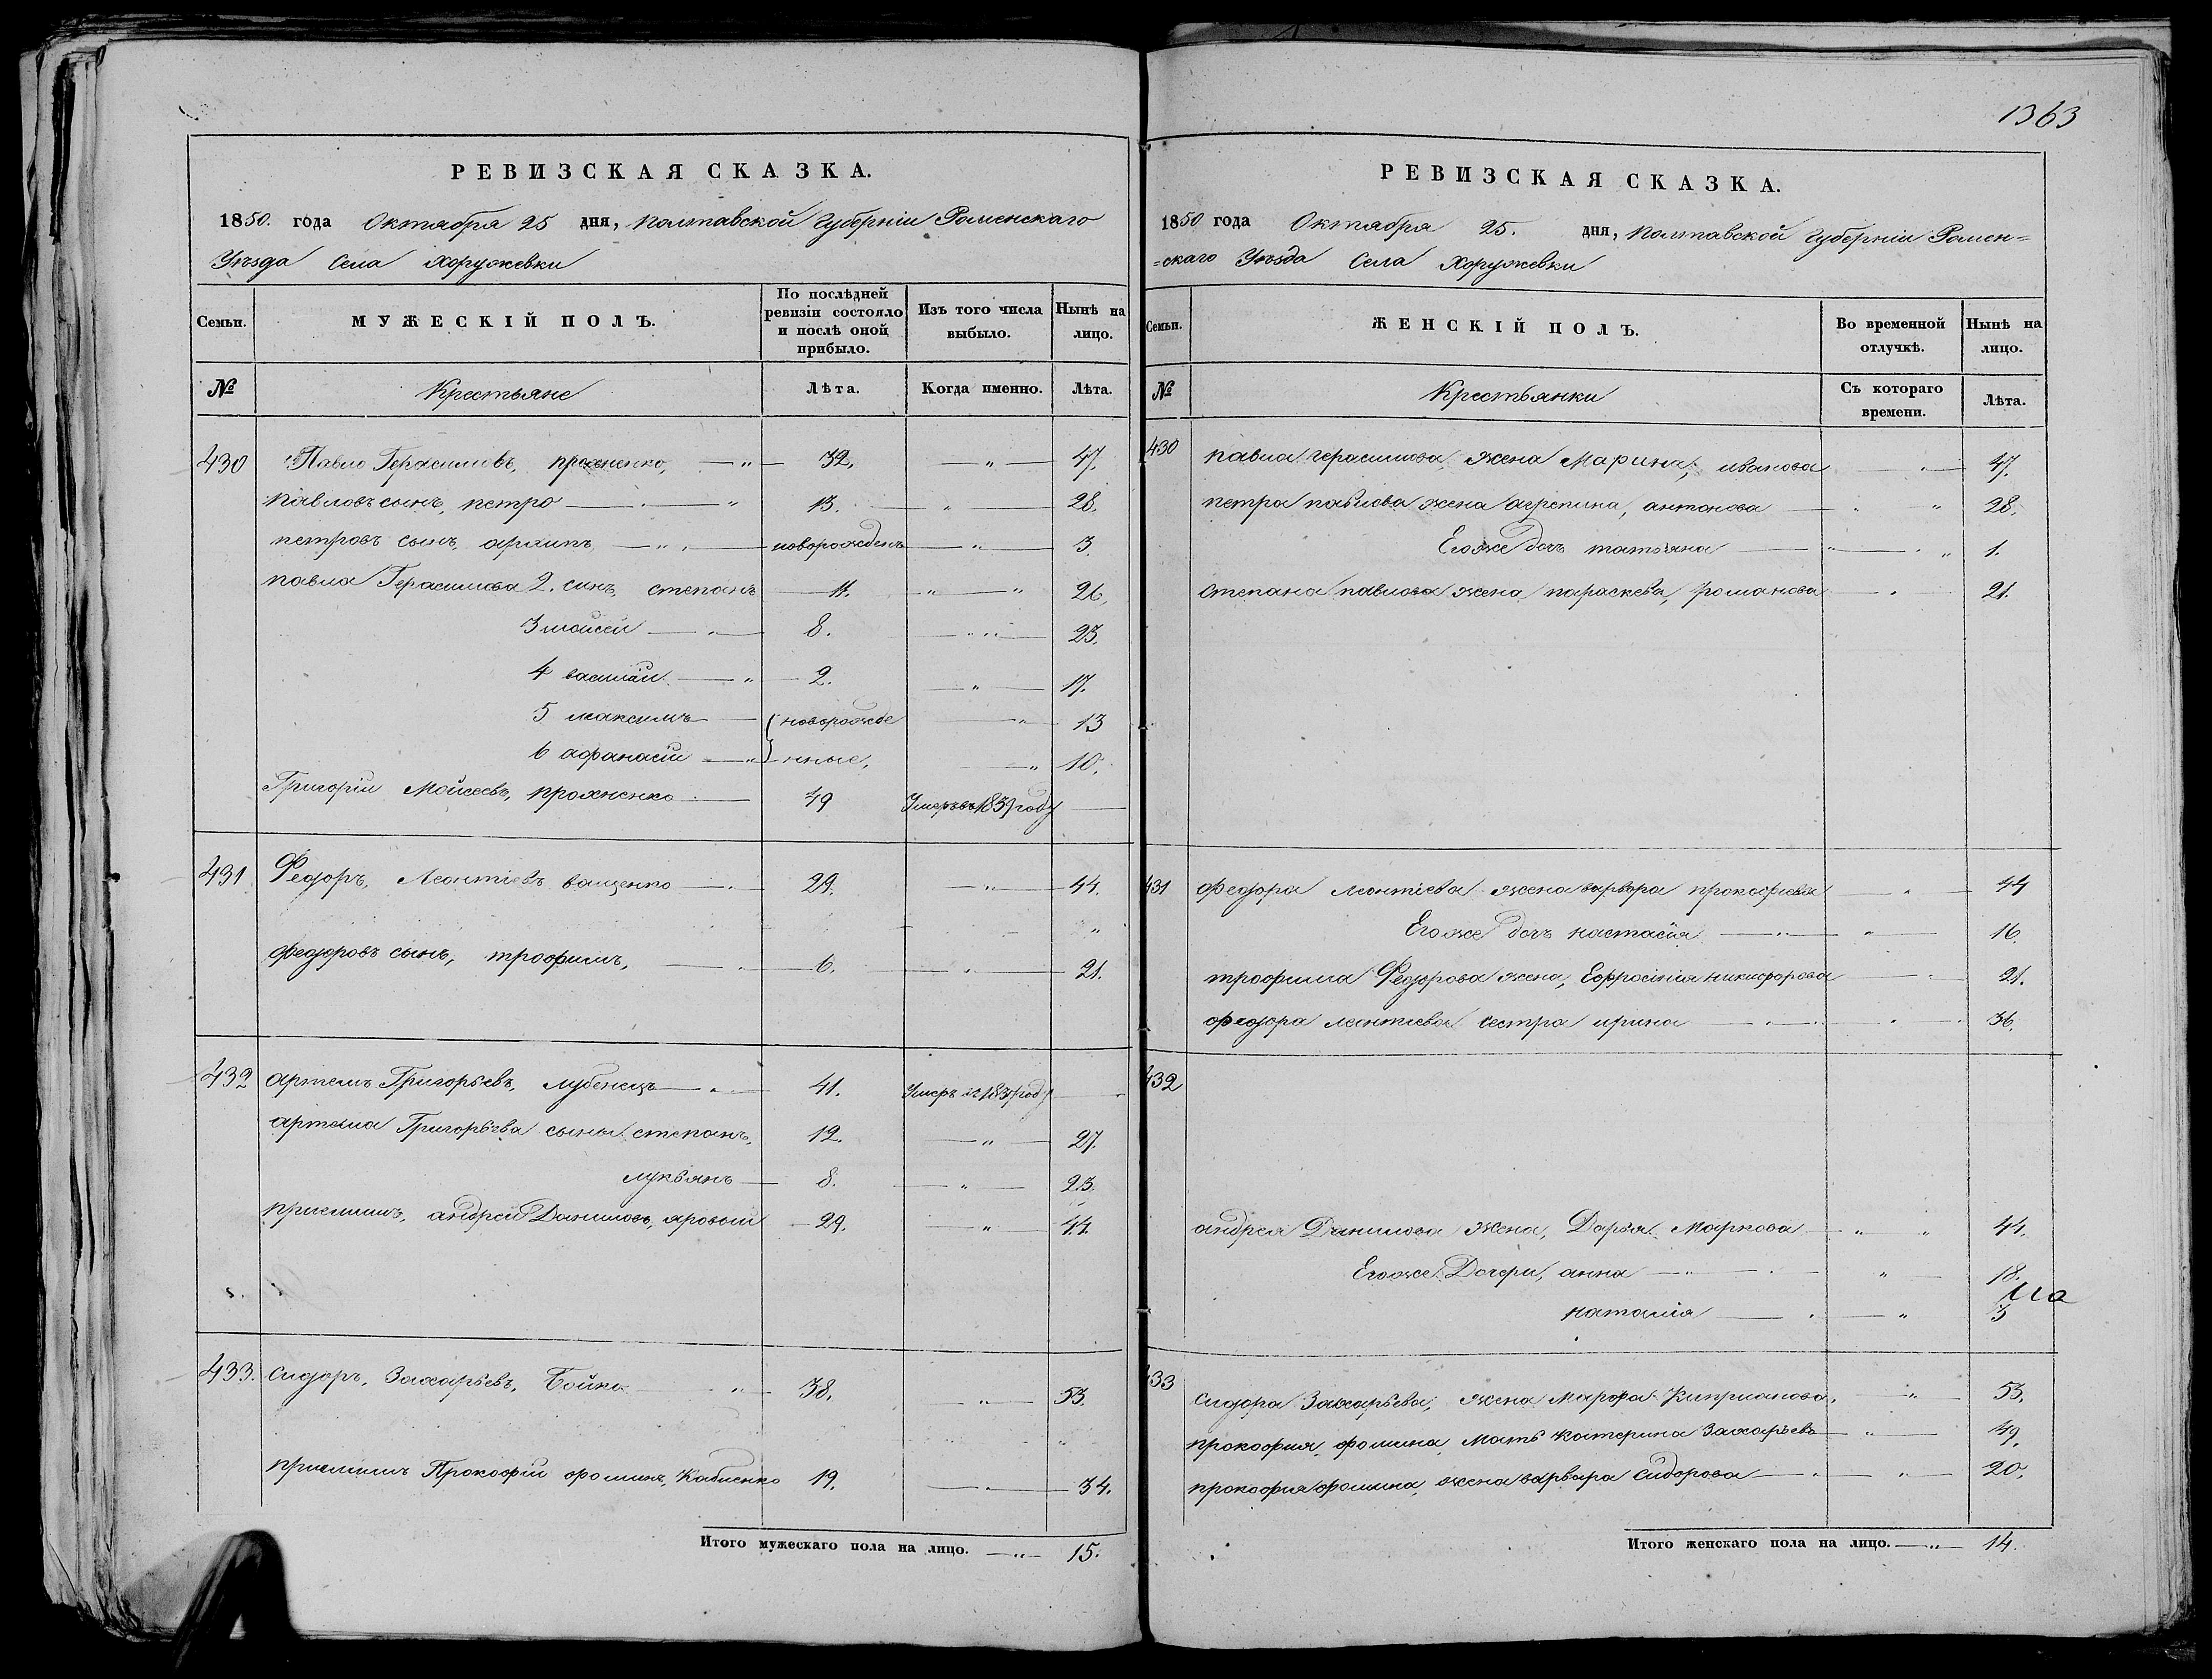 РЕВИЗСКАЯ СКАЗКА.
1850. года Октября 25 дня, Полтавской Губерніи Роменскаго
Уѣзда Села Хоружевки
Семьи.
МУЖЕСКІЙ ПОЛЪ.
По послѣдней ревизіи состояло и послѣ оной прибыло.
Изъ того числа выбыло.
Нынѣ на лицо.
№ Крестьяне Лѣта. Когда именно. Лѣта.
430 Павло Герасимовъ, прохненко, — „ — 32, — „ — 47.
павловъ сынъ, петро — „ 13. — „ — 28.
петровъ сынъ, архипъ — „ — новорожденъ — „ — 3.
павла Герасимова 2. сынъ, степанъ — 11. „ — „ 26,
3 мойсей — „ — 8. — „ — 23.
4 василій — „ — 2. — „ — 17.
5 максимъ — новорожде — „ — 13
6 афанасій — „ — нные, — „ 10,
Григорій Мойсеевъ, прохненко — 49 Умеръ въ 1837 году —
431 Федоръ, Леонтіевъ ващенко — 29. — „ — 44.
„
федоровъ сынъ, трофимъ, — 6. — „ — 21.
432 артемъ Григорьевъ, лубенецъ — „ — 41. Умеръ въ 1837 году —
артема Григорьева сыны степанъ, 12. — „ — 27.
лукьянъ — 8. — „ — 23.
приемишъ, андрей Даниловъ, яровый — 29. — „ — 44.
433. сидоръ, Захарьевъ, Бойко — „ — 38, — „ — 53.
приемишъ Прокофій фоминъ, Кабиенко 19. — „ — 34.
Итого мужескаго пола на лицо. — „ — 15.
1363
РЕВИЗСКАЯ СКАЗКА.
1850 года Октября 25. дня, Полтавской Губерніи Ромен=
=скаго Уѣзда Села Хоружевки
Семьи.
ЖЕНСКІЙ ПОЛЪ.
Во временной отлучкѣ.
Нынѣ на лицо.
№ Крестьянки Съ котораго времени. Лѣта.
430 павла герасимова жена Марина, иванова — „ — 47.
петра павлова жена агрепина, антонова — „ „ 28.
Егоже дочь татьяна — „ — „ 1.
степана павлова жена параскева, романова — „ — 21.
431 федора леонтіева жена варвара прокофіева — „ — 44
Егоже дочь настасія — „ — „ — 16.
трофима Федорова жена, Ефросінія никифорова — „ 21.
федора леонтіева сестра ирина — „ — „ 36.
432
андрея Данилова жена, Дарья Маркова — „ „ 44.
Егоже Дочери, анна — „ — „ — 18.
наталія — „ — „ 3
433 сидора Захарьева, жена Марфа Киприанова, — „ — 53.
прокофия, фомина, Мать катерина Захарьева — „ — 49.
прокофия фомина, жена варвара сидорова — „ — 20.
Итого женскаго пола на лицо. — „ — 14.